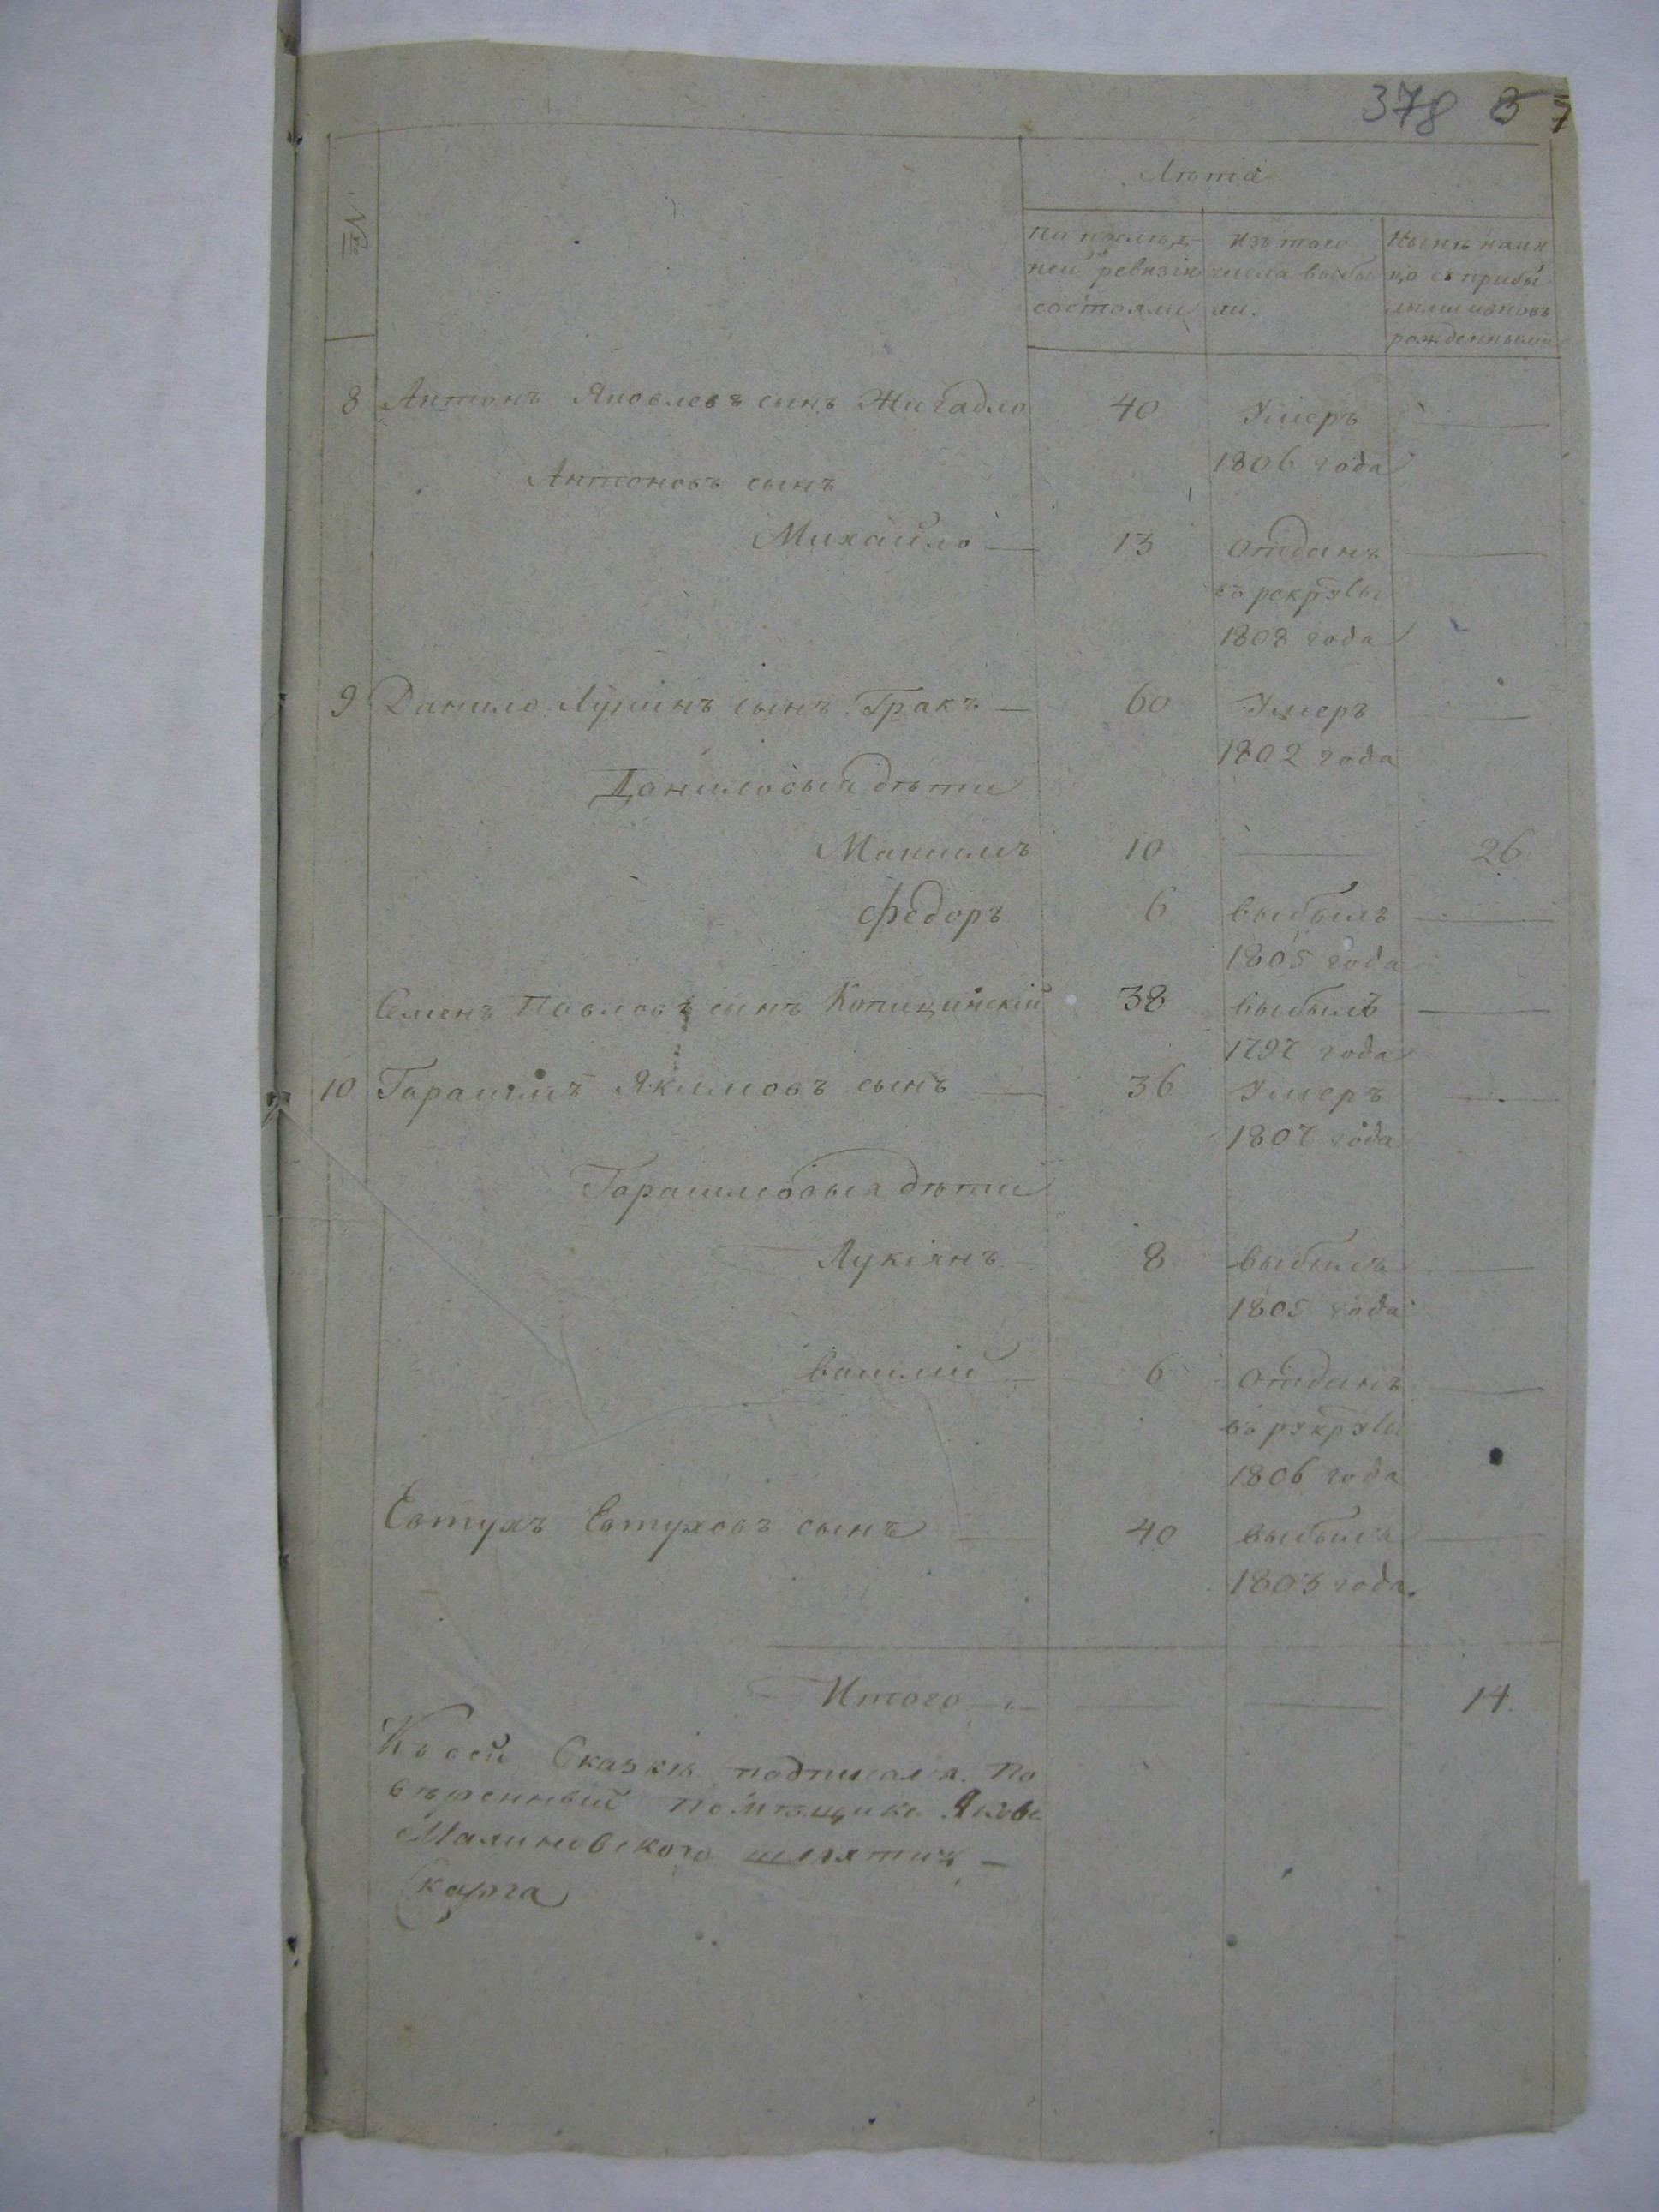 378 8 7
Лѣта
№
По послѣд- Изъ того Нынѣ налиц
ней ревизіи числа выбы цо съ прибы
состояли ли. лыми и вновь
рожденными
8 Антонъ Яковлевъ сынъ Жигадло 40 Умеръ —
1806 года
Антоновъ сынъ
Михайло — 13 Отданъ —
въ рекруты
1808 года
9 Данило сынъ Гракъ — 60 Умеръ —
1802 года
Даниловыя дѣти
Максимъ 10 — 26
Федоръ 6 выбылъ —
1805 года
Семенъ Павловъ сынъ 38 выбылъ —
1797 года
10 Гарасимъ Якимовъ сынъ — 36 Умеръ —
1807 года
Гарасимовыя дѣти
Лукіянъ 8 выбылъ —
1805 года
Василій — 6 Отданъ —
въ рекруты
1806 года
Евтухъ Евтуховъ сынъ — 40 выбылъ —
1803 года.
Итого — — — 14.
Къ сей Сказкѣ подписался По
вѣренный помѣщика Якова
Малиновского шляхтич —
Скарга